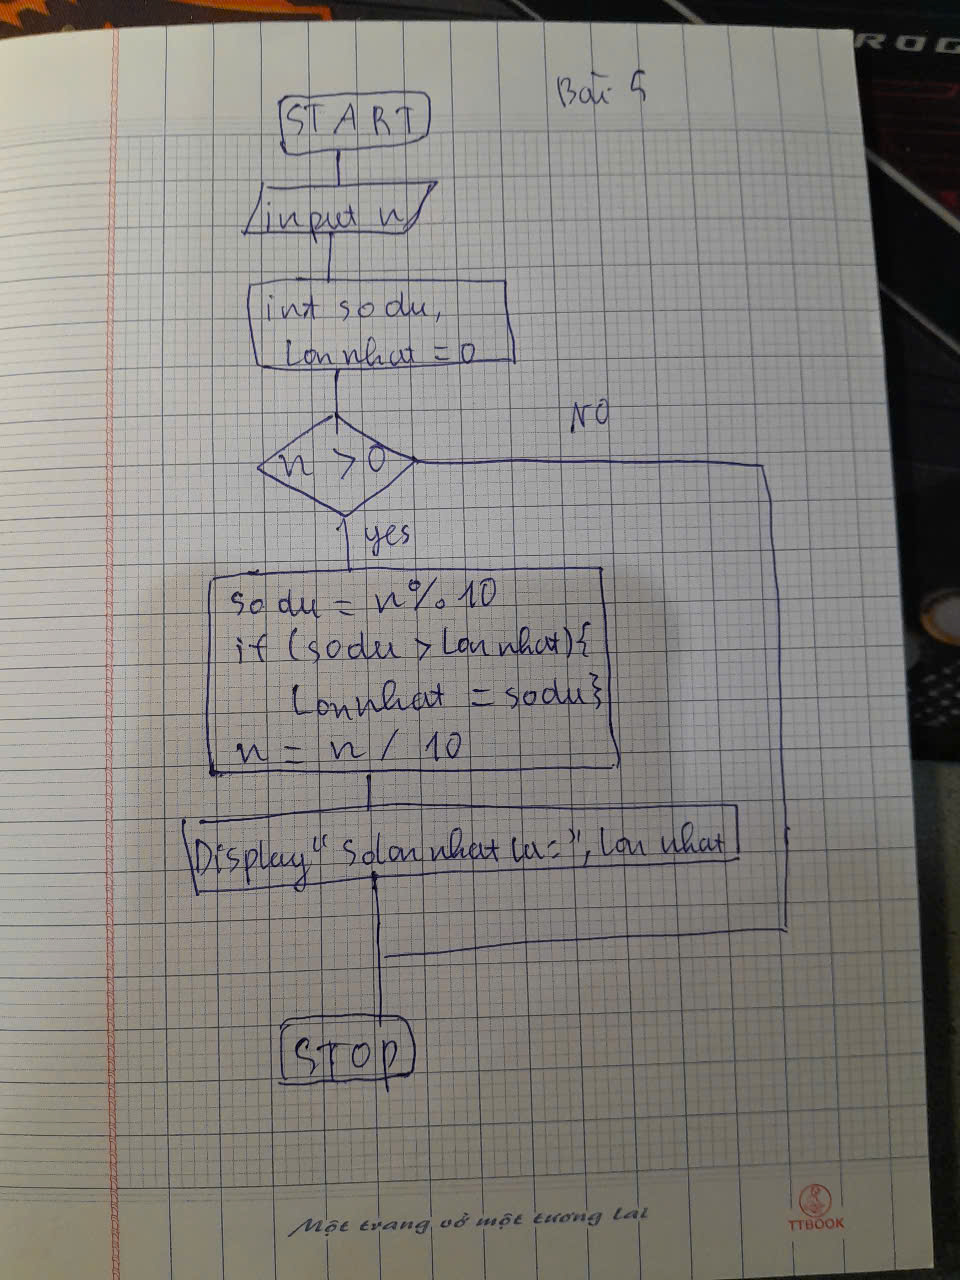 ROG
Bài 5
START
input n
int sodu,
Lonnhat = 0
n > 0
NO
yes
sodu = n % 10
if (sodu > Lonnhat){
Lonnhat = sodu}
n = n / 10
Display "Solonnhat la=", Lonnhat
STOP
Một trang vở một tương lai
TTBOOK